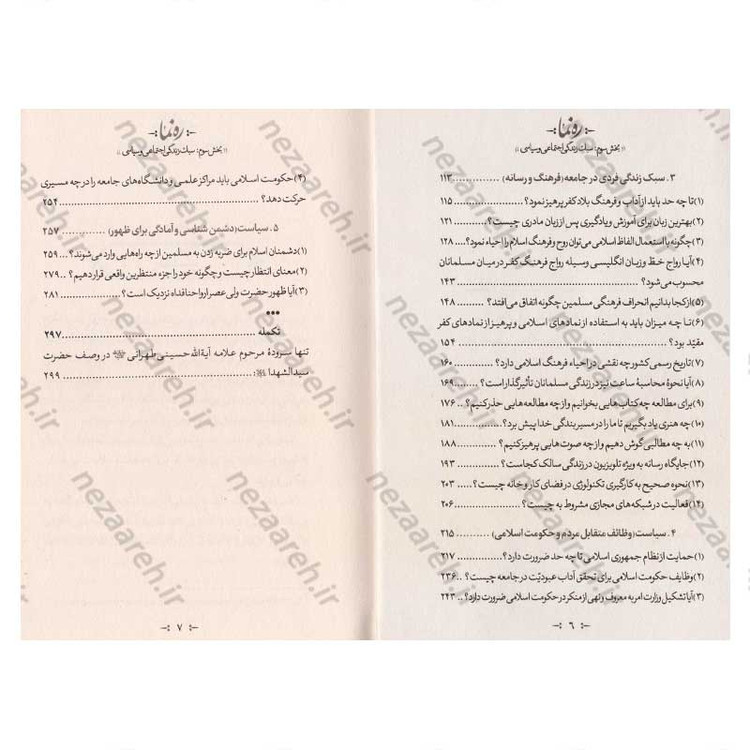 ره‌نما
«بخش سوم: سبک زندگی اجتماعی و سیاسی»
۳. سبک زندگی فردی در جامعه (فرهنگ و رسانه) .......... ۱۱۳
۱) تا چه حد باید از آداب و فرهنگ بلاد کفر پرهیز نمود؟ ....... ۱۱۵
۲) بهترین زبان برای آموزش و یادگیری پس از زبان مادری چیست؟ ..... ۱۲۱
۳) چگونه با استعمال الفاظ اسلامی می‌توان روح و فرهنگ اسلام را احیاء نمود؟ .... ۱۲۸
۴) آیا رواج خط و زبان انگلیسی وسیله رواج فرهنگ کفر در میان مسلمانان
محسوب می‌شود؟ ........ ۱۴۳
۵) از کجا بدانیم انحراف فرهنگی مسلمین چگونه اتفاق می‌افتد؟ ....... ۱۴۸
۶) تا چه میزان باید به استفاده از نمادهای اسلامی و پرهیز از نمادهای کفر
مقیّد بود؟ ........ ۱۵۴
۷) تاریخ رسمی کشور چه نقشی در احیاء فرهنگ اسلامی دارد؟ ..... ۱۶۰
۸) آیا نحوۀ محاسبۀ ساعت نیز در زندگی مسلمانان تأثیرگذار است؟ ..... ۱۶۹
۹) برای مطالعه چه کتاب‌هایی بخوانیم و از چه مطالعه‌هایی حذر کنیم؟ .. ۱۷۶
۱۰) چه هنری یاد بگیریم تا ما را در مسیر بندگی خدا پیش برد؟ ...... ۱۸۱
۱۱) به چه مطالبی گوش دهیم و از چه صوت‌هایی پرهیز کنیم؟ ..... ۱۸۸
۱۲) جایگاه رسانه به ویژه تلویزیون در زندگی سالک کجاست؟ ...... ۱۹۳
۱۳) نحوه صحیح به کارگیری تکنولوژی در فضای کار و خانه چیست؟ ..... ۲۰۳
۱۴) فعالیت در شبکه‌های مجازی مشروط به چیست؟ ....... ۲۰۶
۴. سیاست (وظائف متقابل مردم و حکومت اسلامی) .......... ۲۱۵
۱) حمایت از نظام جمهوری اسلامی تا چه حد ضرورت دارد؟ ..... ۲۱۷
۲) وظایف حکومت اسلامی برای تحقق آداب عبودیّت در جامعه چیست؟ .. ۲۳۶
۳) آیا تشکیل وزارت امر به معروف و نهی از منکر در حکومت اسلامی ضرورت دارد؟ .. ۲۴۳
۶
ره‌نما
«بخش سوم: سبک زندگی اجتماعی و سیاسی»
۴) حکومت اسلامی باید مراکز علمی و دانشگاه‌های جامعه را در چه مسیری
حرکت دهد؟ ........ ۲۵۴
۵. سیاست (دشمن شناسی و آمادگی برای ظهور) ....... ۲۵۷
۱) دشمنان اسلام برای ضربه زدن به مسلمین از چه راه‌هایی وارد می‌شوند؟ .... ۲۵۹
۲) معنای انتظار چیست و چگونه خود را جزء منتظرین واقعی قرار دهیم؟ ... ۲۷۹
۳) آیا ظهور حضرت ولی عصر ارواحنا فداه نزدیک است؟ ........ ۲۸۱
•••
تکمله ........ ۲۹۷
تنها سرودۀ مرحوم علامه آیة الله حسینی طهرانی در وصف حضرت
سید الشهدا: ........ ۲۹۹
۷
nezaareh.ir